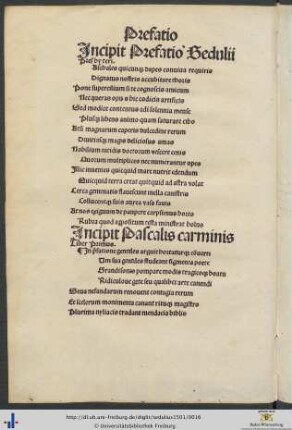 Prefatio
Incipit Prefatio Sedulii
Pres byteri.
Aschales quicunq dapes conuiua requiris
Dignatus nostris accubitare thoris
Pone supercilium si te cognoscis amicum
Nec queras opus hic codicis artificis
Sed modice contentus adi solennia mense
Plusq libens animo quam saturare cibo
Aut magnarum caperis dulcedine rerum
Diuitiasq magis deliciosus amas
Nobilium nitidis doctorum vescere cenis
Quorum multiplices nec numerantur opes
Illic inuenies quicquid mare nutrit edendum
Quicquid terra creat quicquid ad astra volat
Cerea gemmatis flauescunt mella canistris
Collucentq suis aurea vasa fauis
At nos exiguum de paupere carpsimus horto
Rubra quod appositum testa ministrat holus
Incipit Pascalis carminis
Liber Primus.
In psalmo gentiles arguit
Um sua gentiles studeant figmenta poete
Grandisonis pompare modis tragicoq boatu
Ridiculoue gete seu qualibet arte canendi
Seua nefandarum renouent contagia rerum
Et scelerum monimenta canant rituq magistro
Plurima nyliacis tradant mendacia biblis
http://dl.ub.uni-freiburg.de/diglit/sedulius1501/0016
© Universitätsbibliothek Freiburg
Baden-Württemberg